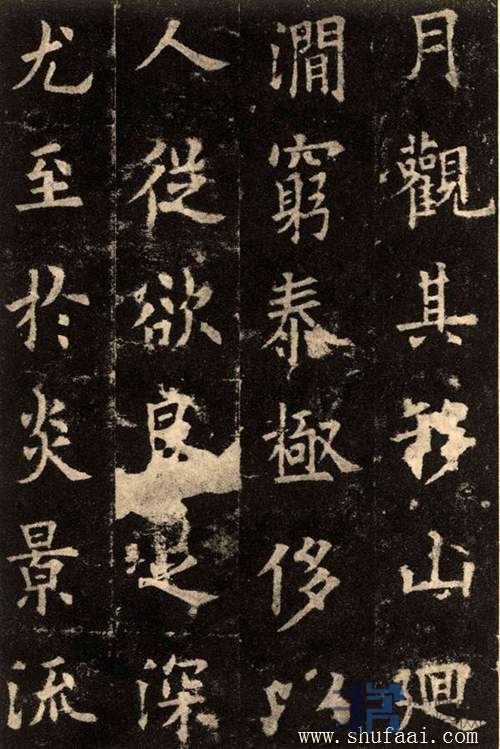 月觀其移山迴
澗窮泰極侈以
人從欲良足深
尤至於炎景流
www.shufaai.com